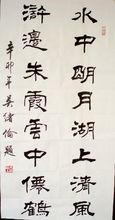 水中明月湖上清風
滸邊朱霞雲中僊鶴
辛卯年吴緒倫題